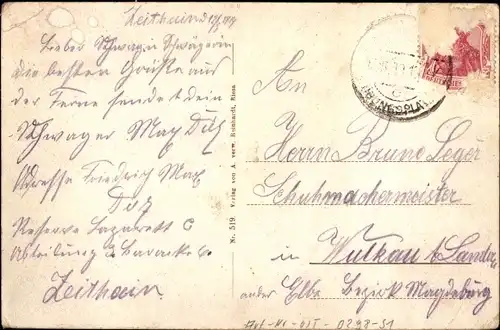 Zeithain
Lieber Schwager Schwägerin
die besten Grüße aus
der Ferne sendet dein
Schwager Max
Adresse Friedrich Max
Reserve Lazarett C
Abteilung 2 Baracke 6
Zeithain
Nr. 519. Verlag von A. verw. Reinhardt, Riesa
An
Herrn Bruno Leger
Schuhmachermeister
in Wulkau b/Sandau
an der Elbe Bezirk Magdeburg